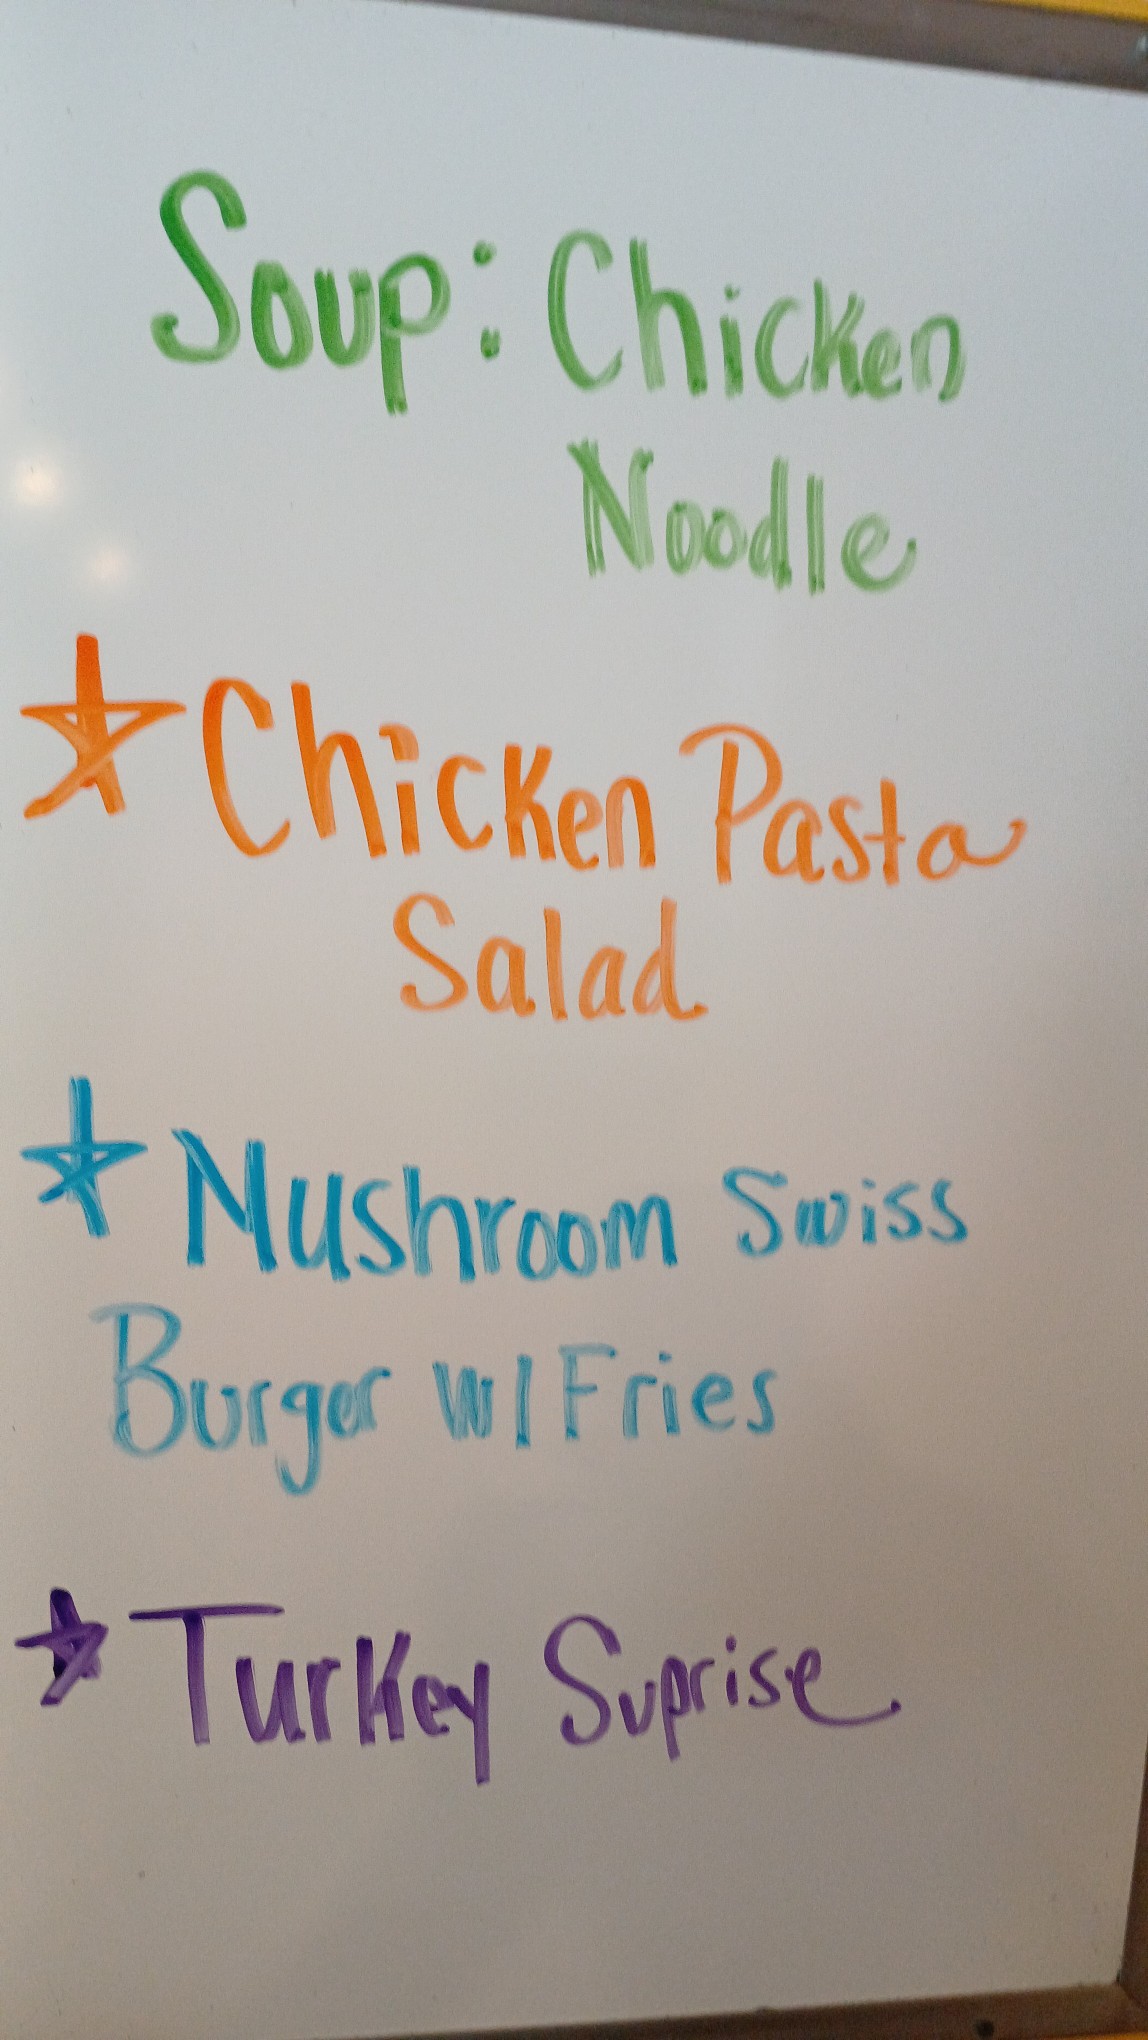 Soup: Chicken
Noodle
Chicken Pasta
Salad
Mushroom Swiss
Burger w/ Fries
Turkey Suprise